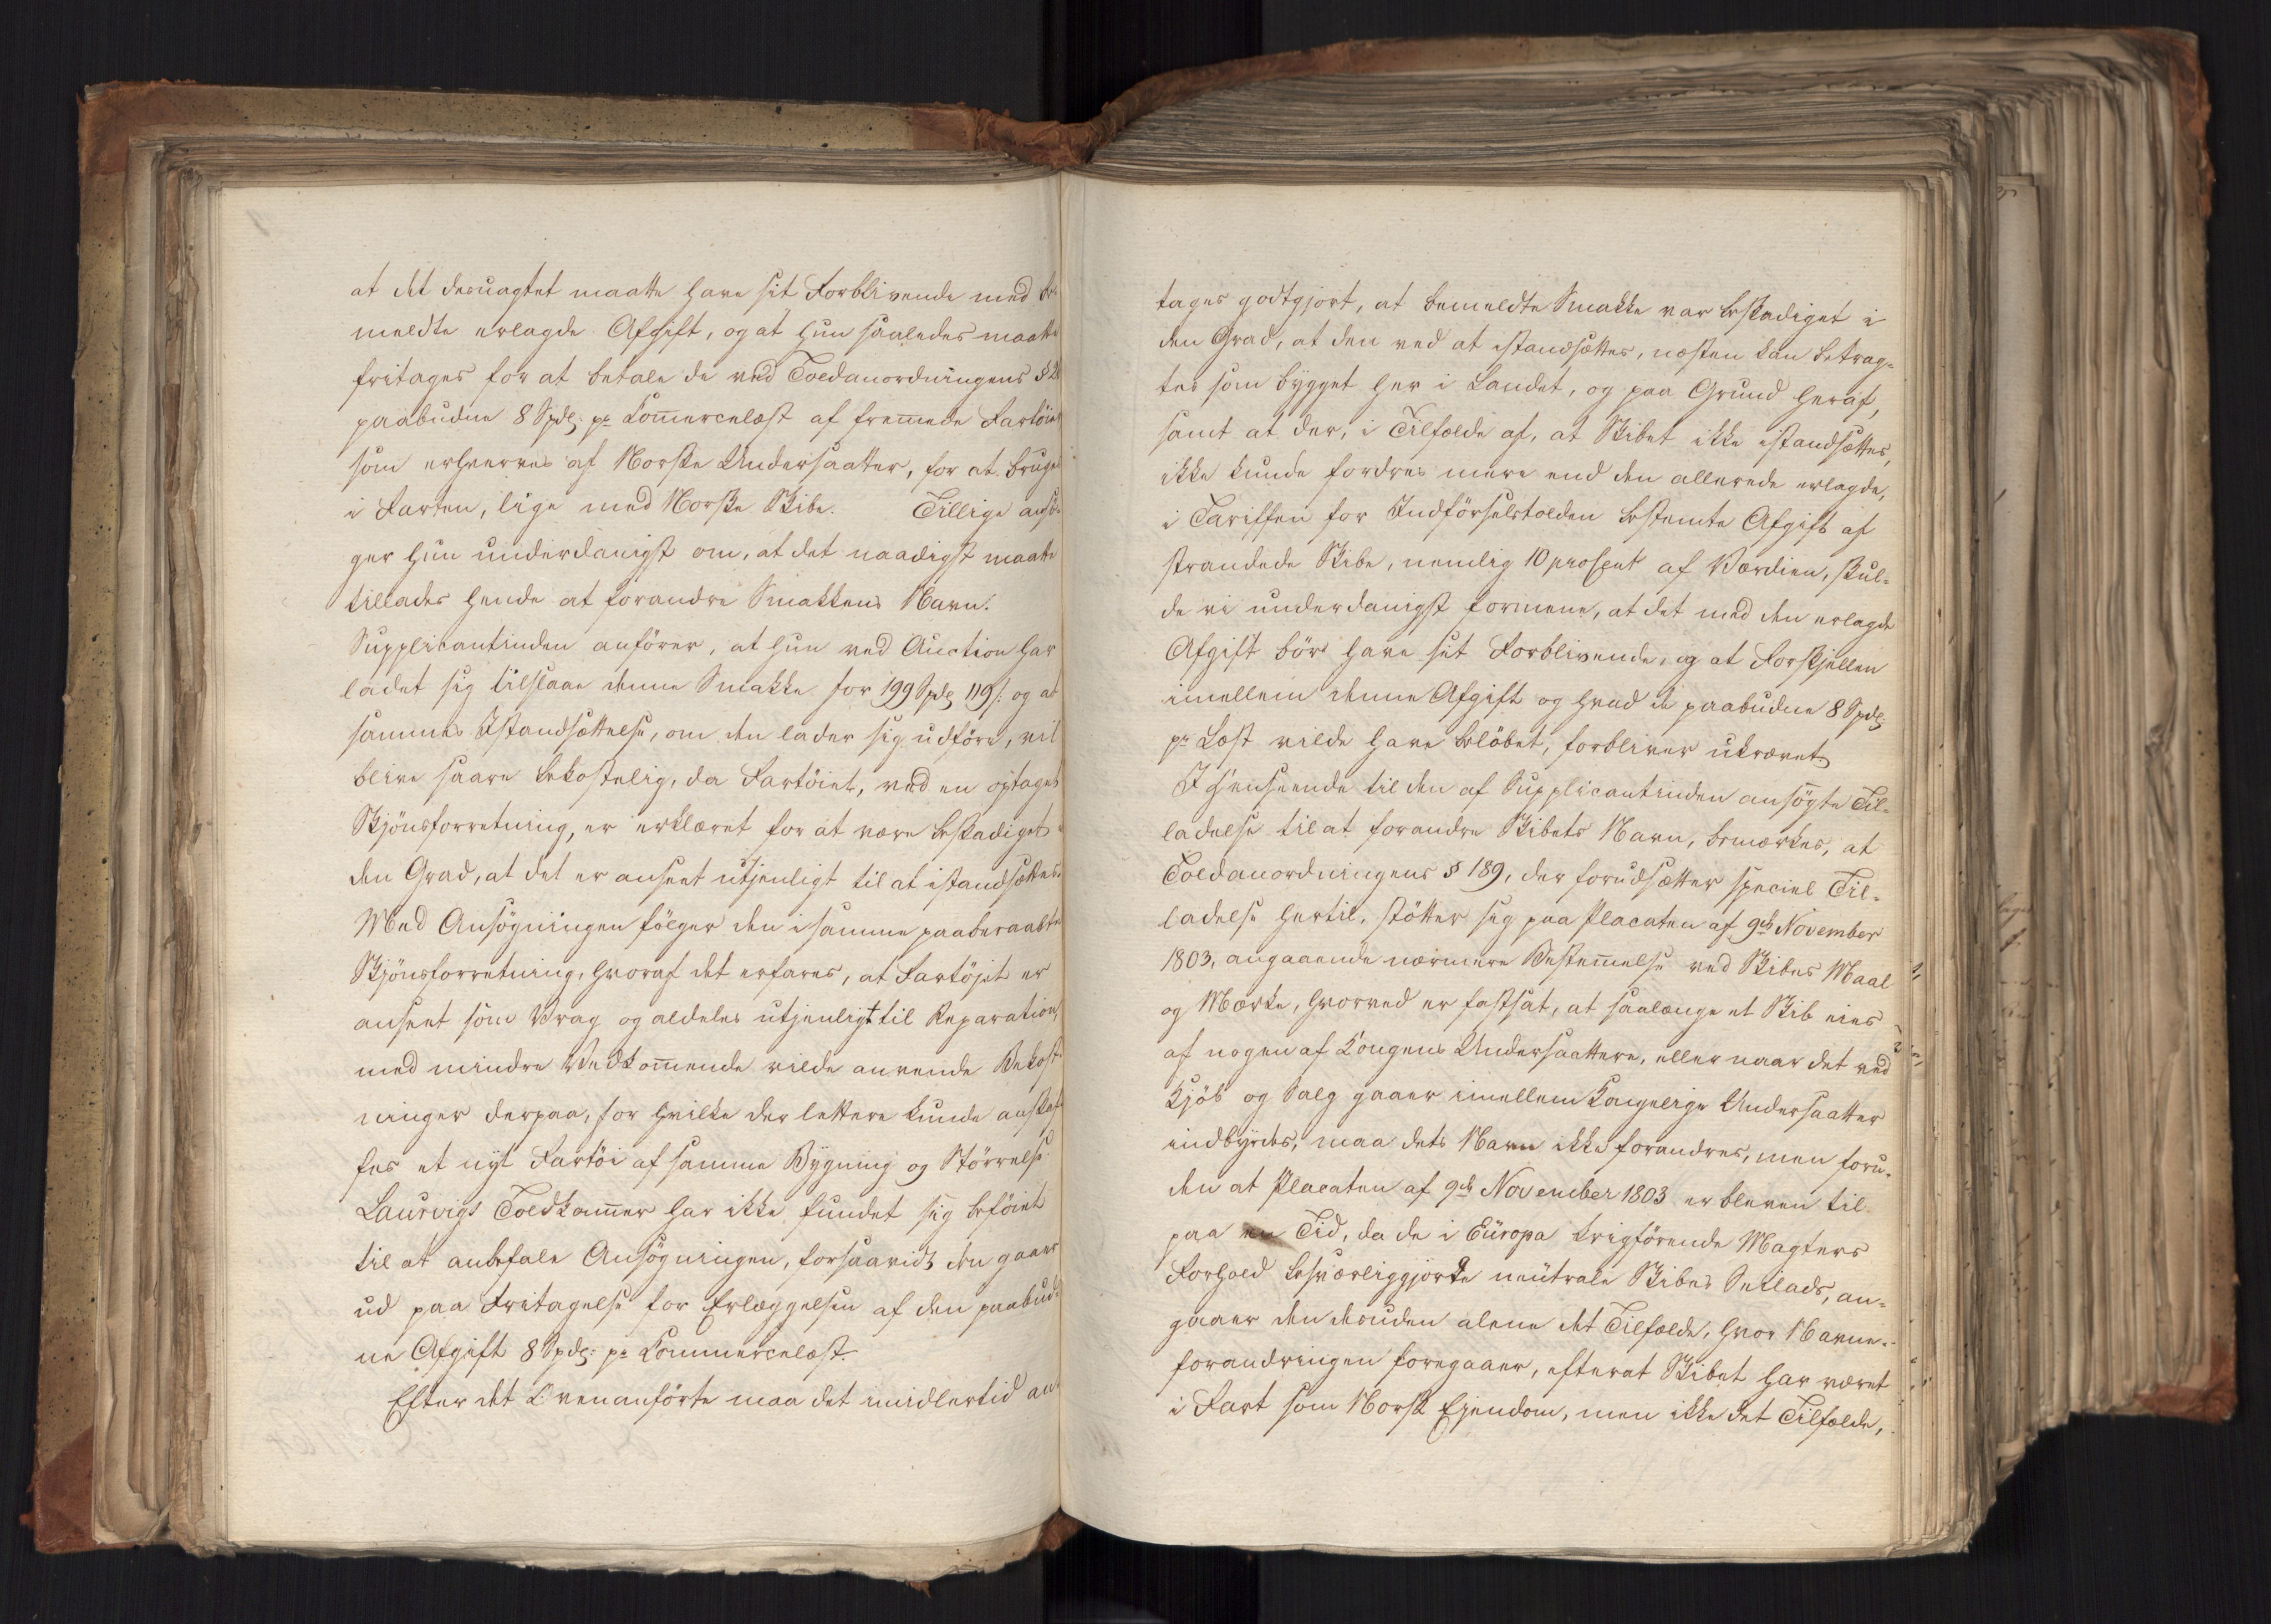 at det desuagtet maatte have sit Forblivende med be-
meldte erlagde Afgift, og at hun saaledes maatte
fritages for at betale de ved Toldanordningens §
paabudne 8 Spdlr: pr Com̄ercelæst af frem̄ede Fartöier
som erhverves af Norske Undersaatter, for at bruges
i Farten, lige med Norske Skibe. Tillige ansö-
ger hun underdanigst om, at det naadigst maatte
tillades hende at forandre Smakkens Navn.
Supplicantinden anförer, at hun ved Auction har
ladet sig tilslaae denne Smakke for 199 Spdlr 119 s. og at
sammes Istandsættelse, om den lader sig udföre, vil
blive saare bekostelig, da Fartöiet, ved en optaget
Skjönsforretning, er erklæret for at være beskadiget i
den Grad, at det er anseet utjenligt til at istandsættes.
Med Ansögningen fölger den i samme paaberaabte
Skjönsforretning, hvoraf det erfares, at Fartöjet er
anseet som Vrag og aldeles utjenligt til Reparation,
med mindre Vedkom̄ende vilde anvende Bekost-
ninger derpaa, for hvilke der lettere kunde anskaf-
fes et nyt Fartöi af samme Bygning og Störrelse.
Laurvigs Toldkam̄er har ikke fundet sig beföiet
til at anbefale Ansögningen, forsaavidt den gaaer
ud paa Fritagelse for Erlæggelsen af den paabud-
ne Afgift 8 Spdlr: pr Commercelæst.
Efter det Ovenanförte maa det imidlertid an-
tages godtgjort, at bemeldte Smakke var beskadiget i
den Grad, at den ved at istandsættes, næsten kan betrag-
tes som bygget her i Landet, og paa Grund heraf,
samt at der, i Tilfælde af, at Skibet ikke istandsættes,
ikke kunde fordres mere end den allerede erlagde,
i Tariffen for Indförselstolden bestemte Afgift af
strandede Skibe, nemlig 10 procent af Værdien, skul-
de vi underdanigst formene, at det med den erlagde
Afgift bör have sit Forblivende, og at Forskjellen
imellem denne Afgift og hvad de paabudne 8 Spdlr:
pr Læst vilde have belöbet, forbliver ukrævet.
I Henseende til den af Supplicantinden ansögte Til-
ladelse til at forandre Skibets Navn, bemærkes, at
Toldanordningens § 189, der forudsætter speciel Til-
ladelse hertil, stötter sig paa Placaten af 9de November
1803, angaaende nærmere Bestem̄else ved Skibes Maal
og Mærke, hvorved er fastsat, at saalænge et Skib eies
af nogen af Kongens Undersaattere, eller naar det ved
Kjöb og Salg gaaer imellem Kongelige Undersaatter
indbyrdes, maa dets Navn ikke forandres, men foru-
den at Placaten af 9de November 1803 er bleven til
paa en Tid, da de i Europa krigförende Magters
Forhold besværliggjorde neutrale Skibes Seilads, an-
gaaer den desuden alene det Tilfælde, hvor Navne-
forandringen foregaaer, efterat Skibet har været
i Fart som Norsk Ejendom, men ikke det Tilfælde,